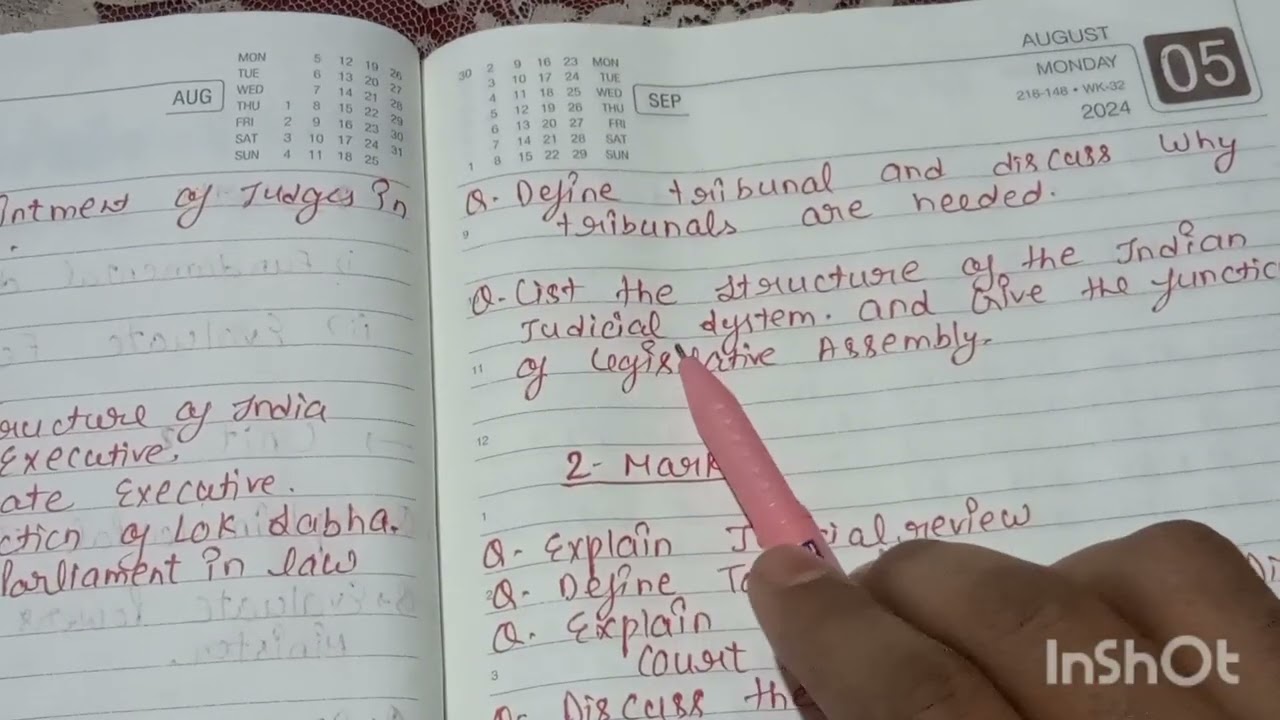 AUG
MON 5 12 19 26
TUE 6 13 20 27
WED 7 14 21 28
THU 1 8 15 22 29
FRI 2 9 16 23 30
SAT 3 10 17 24 31
SUN 4 11 18 25
intment of Judges in
ructure of India
Executive.
ate Executive.
ction of Lok dabha.
Parliament in law
30 2 9 16 23 MON
3 10 17 24 TUE
4 11 18 25 WED
5 12 19 26 THU
6 13 20 27 FRI
7 14 21 28 SAT
1 8 15 22 29 SUN
SEP
AUGUST
MONDAY
218-148 • WK-32
2024
05
Q. Define tribunal and discuss Why
9 tribunals are needed.
Q. List the structure of the Indian
Judicial dystem. and Give the functic
11 of Legislative Assembly.
12
2- Mark
1
Q- Explain review
2 Q. Define
Q. Explain
3 Court
Q. Discuss the
InShOt